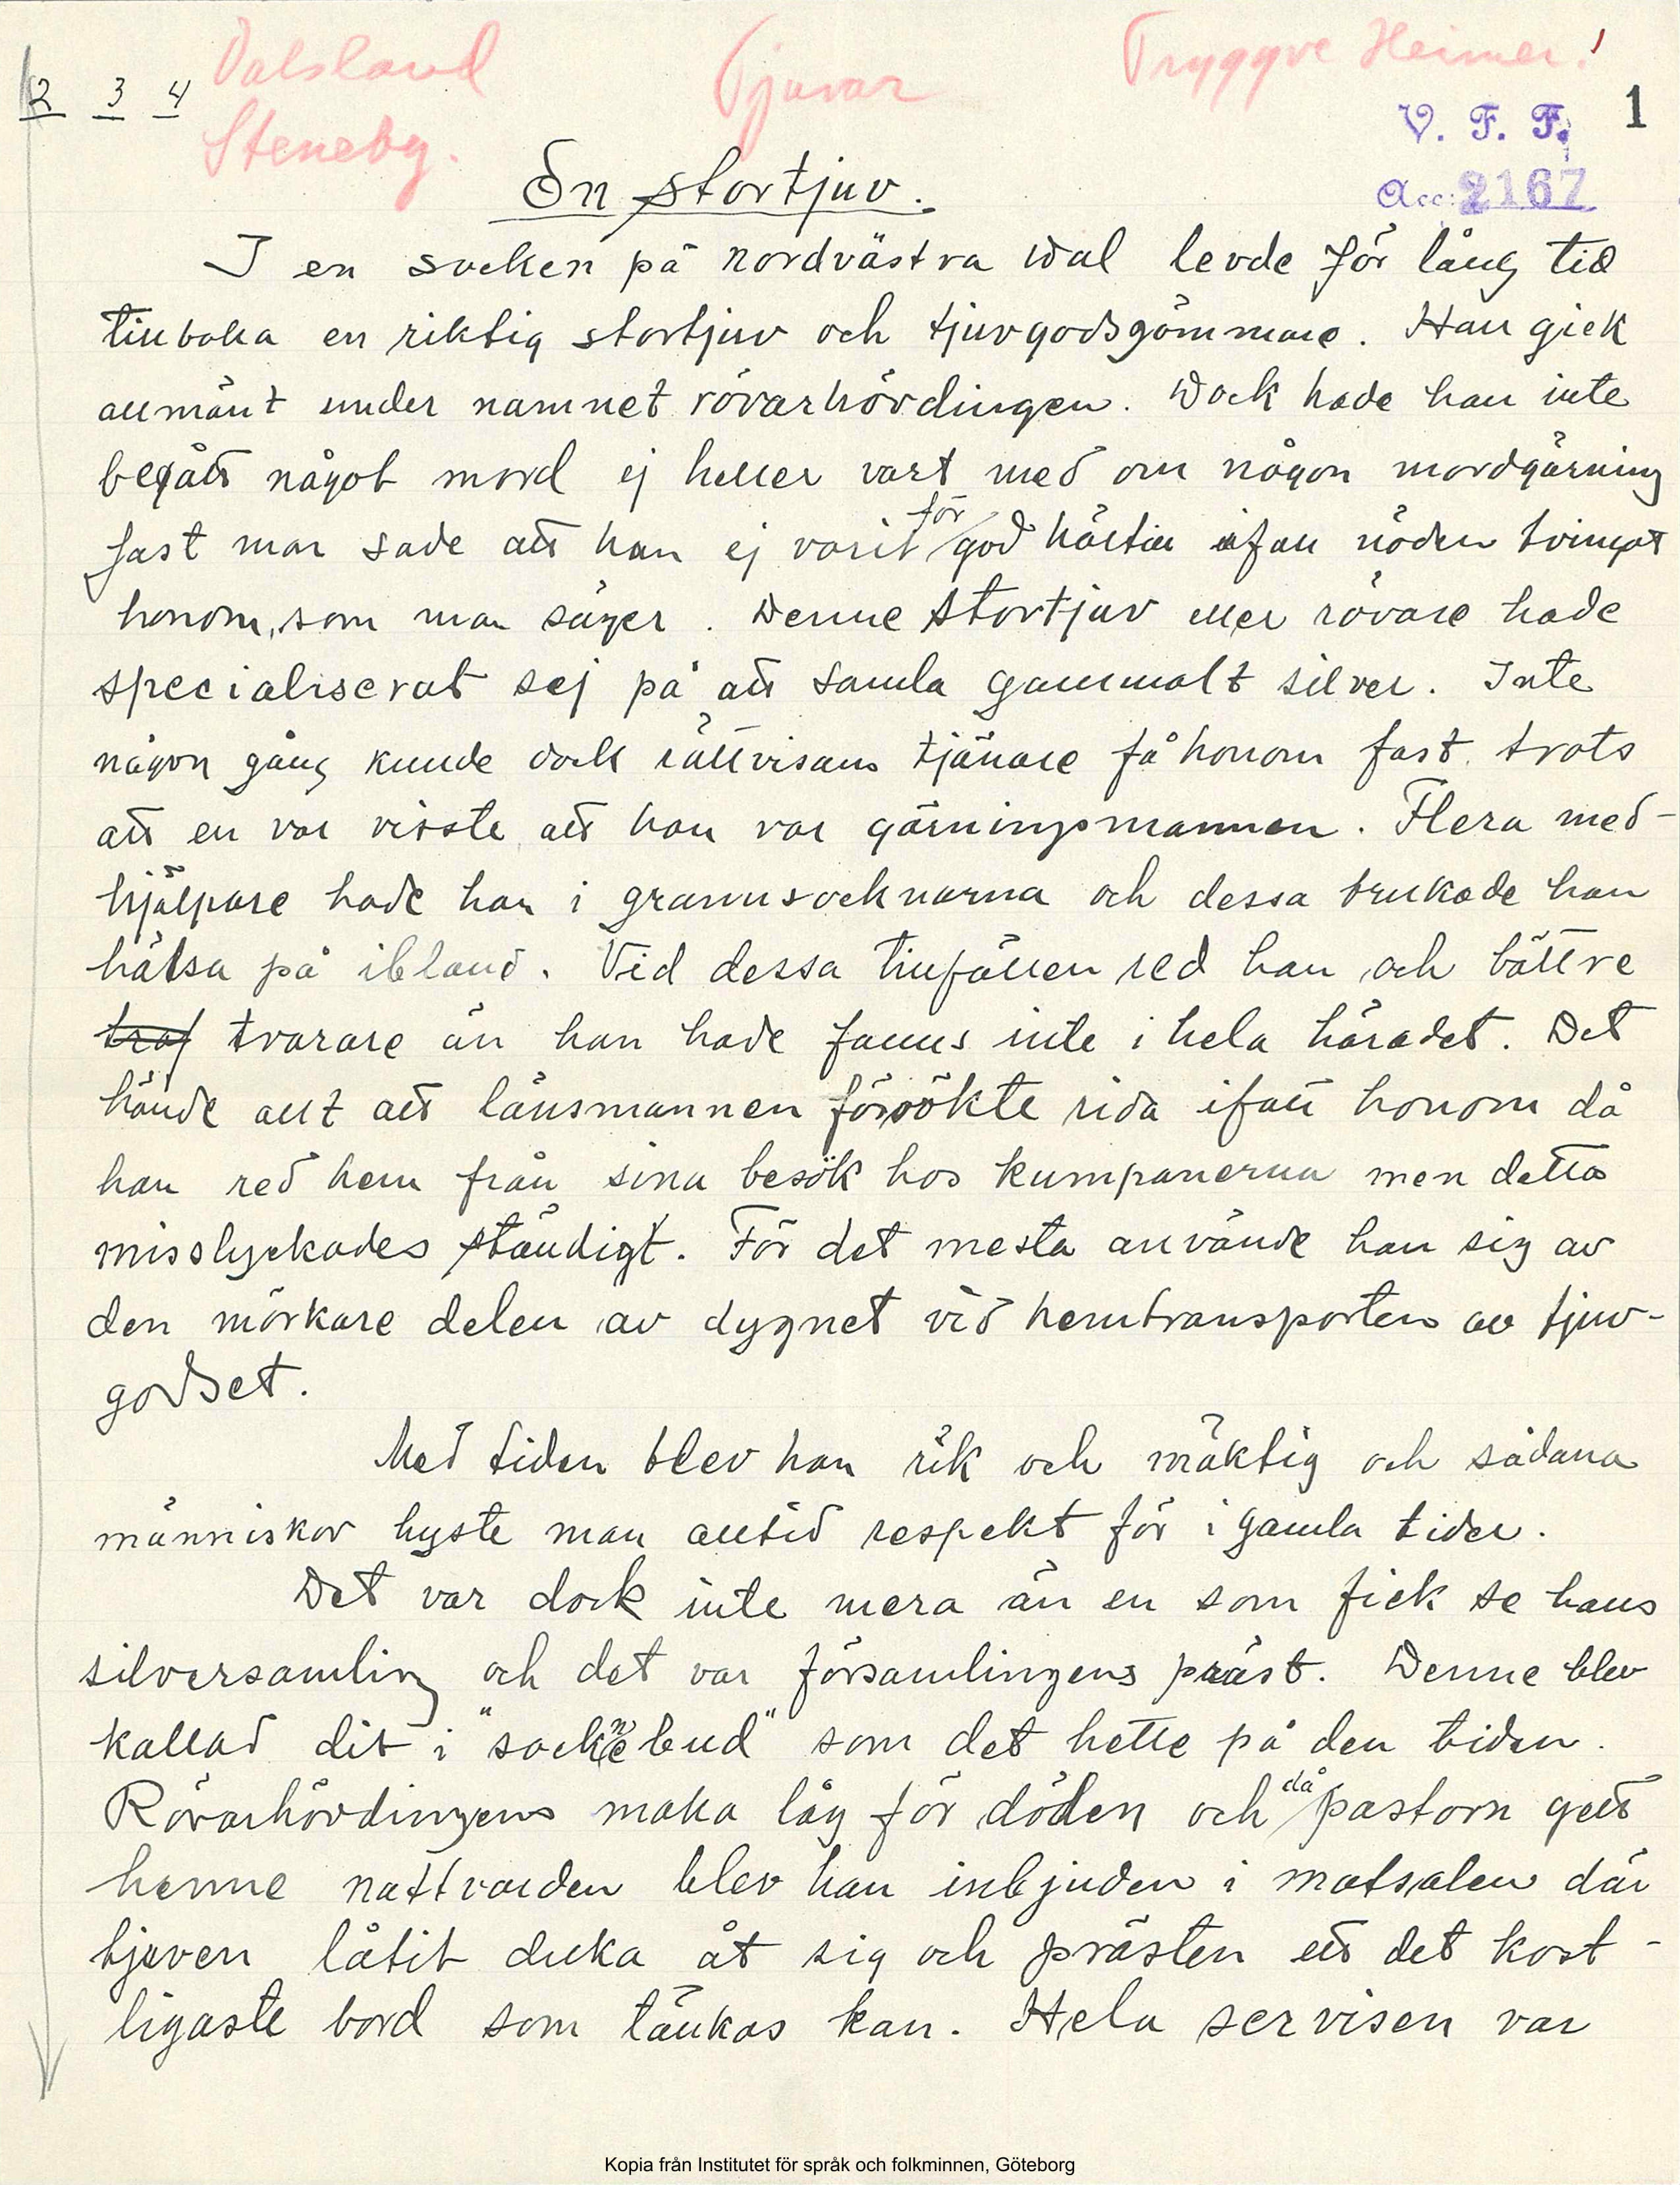 2 3 4
Dalsland
Steneby.
Tjuvar
Tryggve Heimer!
V. F. F.
Acc: 2167
1
En stortjuv.
I en socken på nordvästra Dal levde för lång tid
tillbaka en riktig stortjuv och tjuvgodsgömmare. Han gick
allmänt under namnet rövarhövdingen. Dock hade han inte
begått något mord ej heller vart med om någon mordgärning
fast man sade att han ej varit för god härtill ifall nöden tvingat
honom, som man säger. Denne stortjuv eller rövare hade
specialiserat sej på att samla gammalt silver. Inte
någon gång kunde dock rättvisans tjänare få honom fast trots
att en var visste att han var gärningsmannen. Flera med-
hjälpare hade han i grannsocknarna och dessa brukade han
hälsa på ibland. Vid dessa tillfällen red han och bättre
traf travare än han hade fanns inte i hela häradet. Det
hände allt att länsmannen försökte rida ifatt honom då
han red hem från sina besök hos kumpanerna men detta
misslyckades ständigt. För det mesta använde han sig av
den mörkare delen av dygnet vid hemtransporten av tjuv-
godset.
Med tiden blev han rik och mäktig och sådana
människor hyste man alltid respekt för i gamla tider.
Det var dock inte mera än en som fick se hans
silversamling och det var församlingens präst. Denne blev
kallad dit i "socknebud" som det hette på den tiden.
Rövarhövdingens maka låg för döden och då pastorn gett
henne nattvarden blev han inbjuden i matsalen där
tjuven låtit duka åt sig och prästen ett det kost-
ligaste bord som tänkas kan. Hela servisen var
Kopia från Institutet för språk och folkminnen, Göteborg